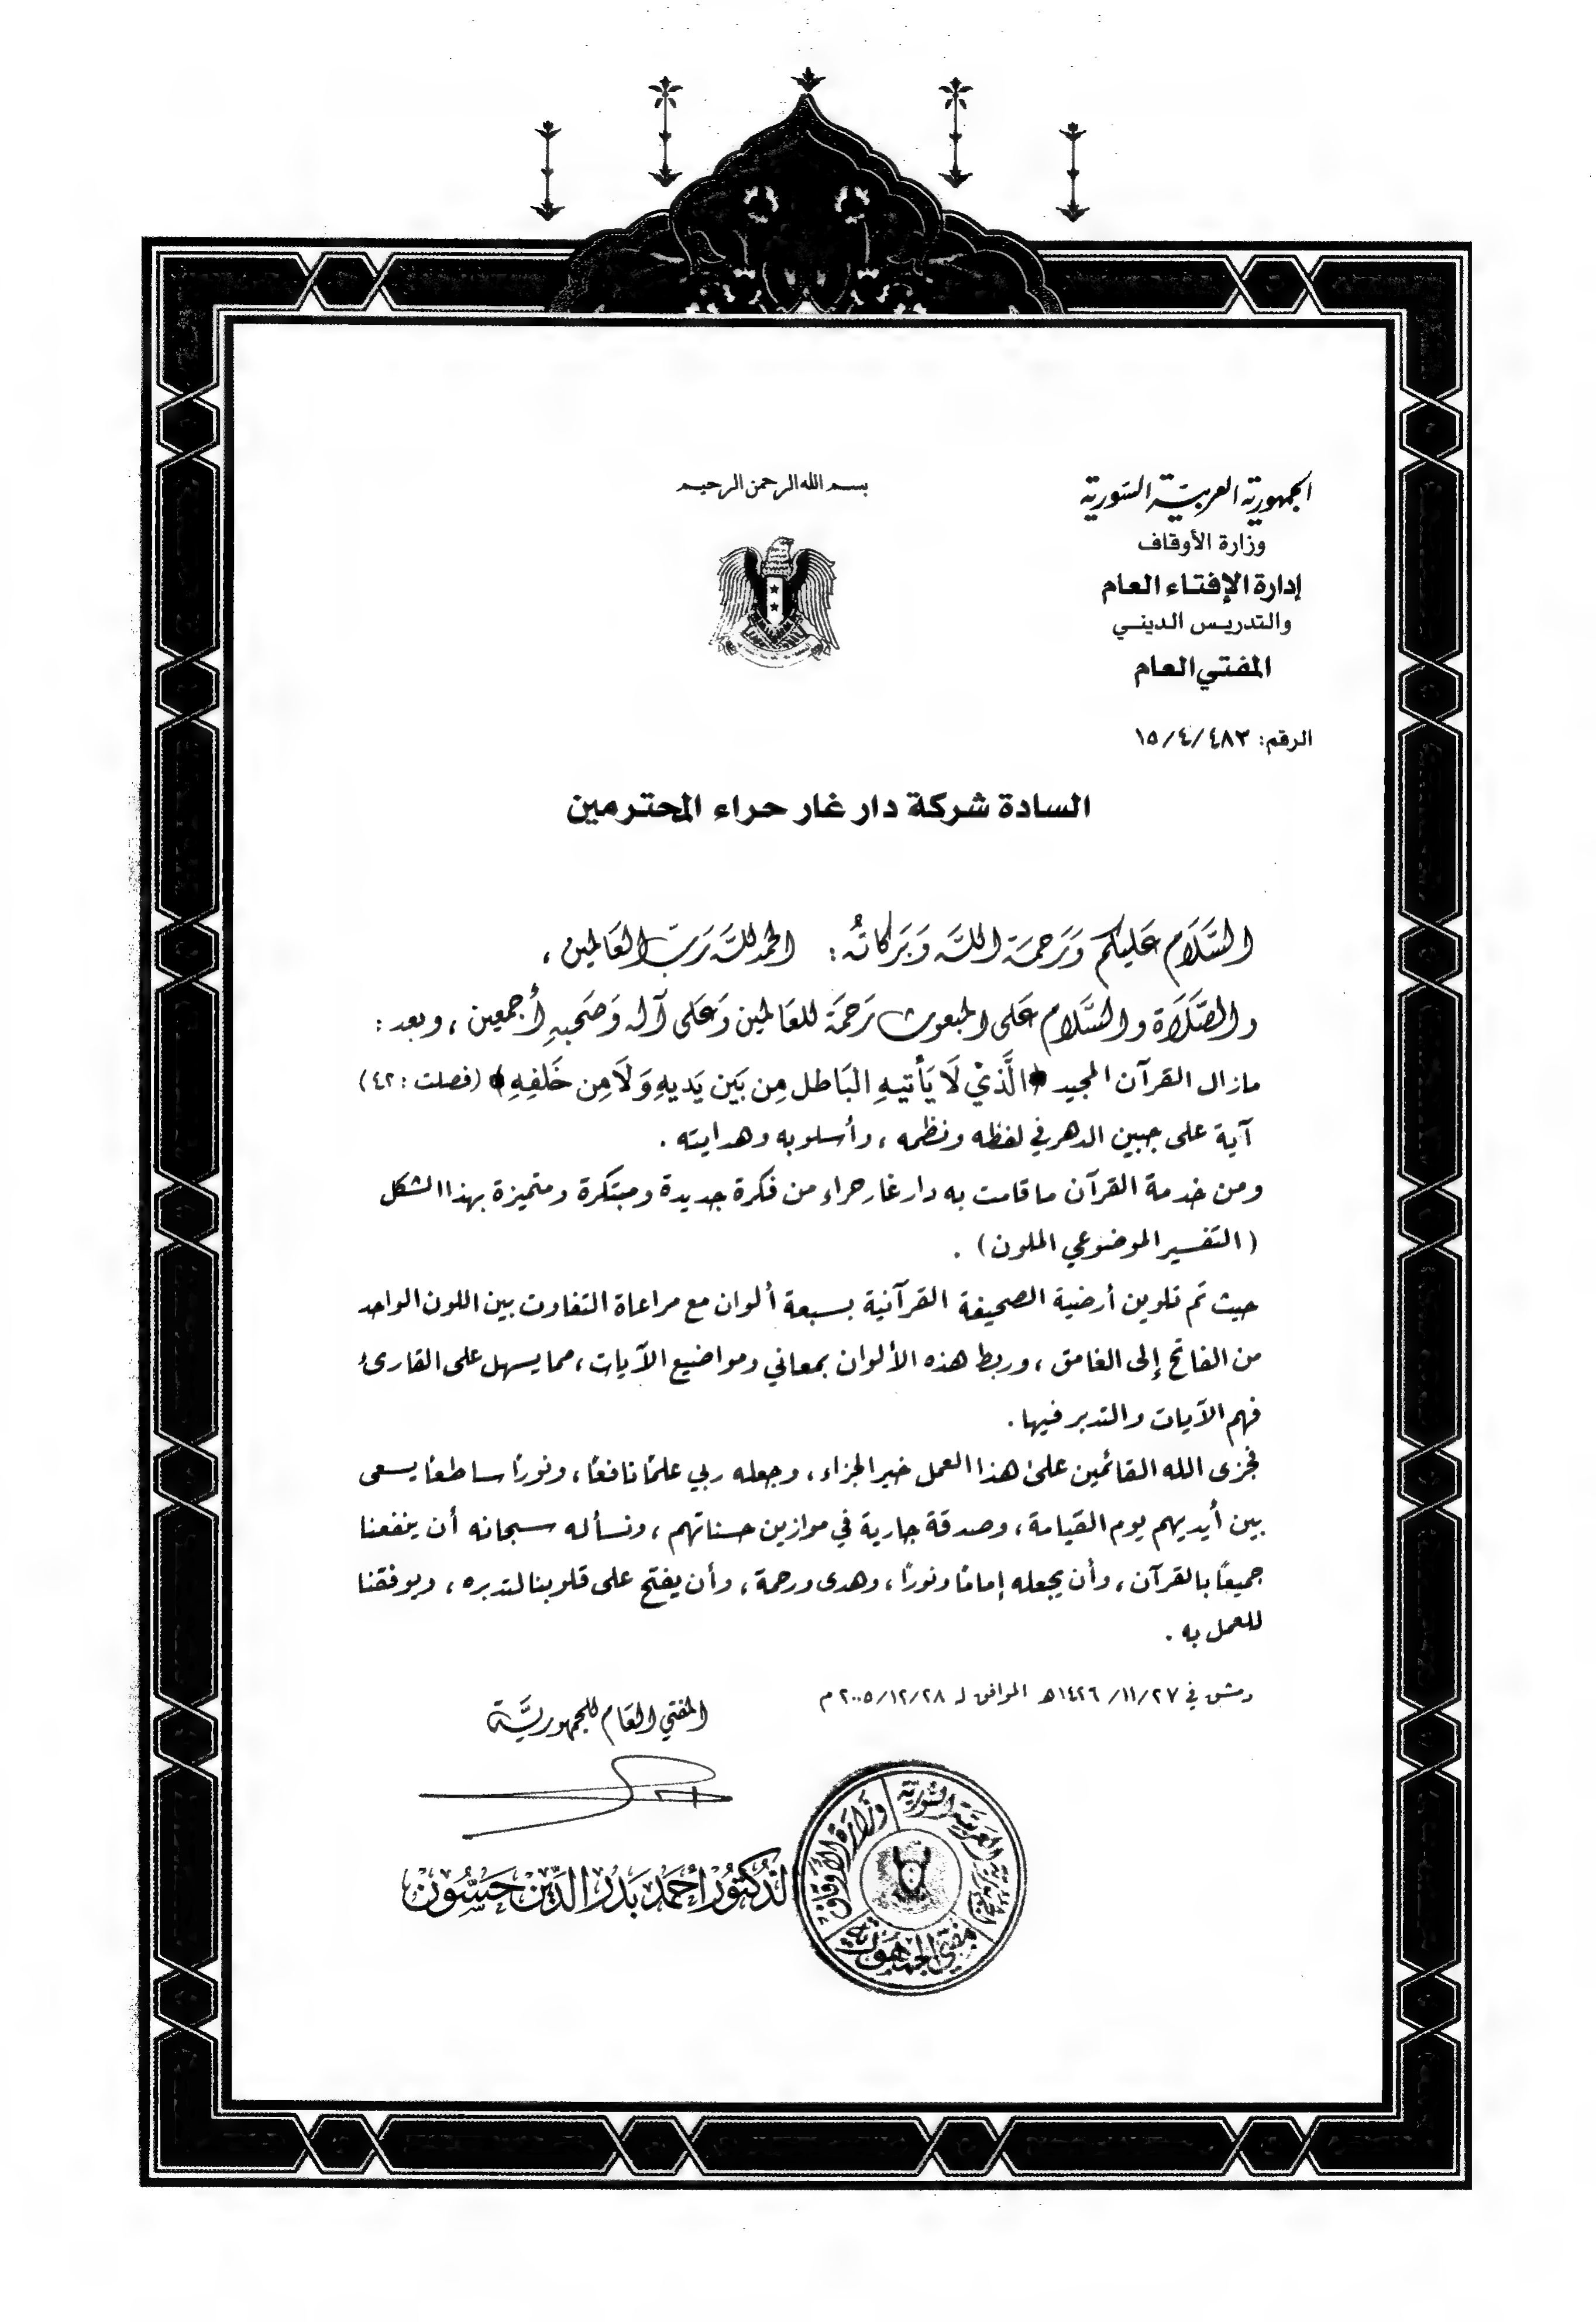 بسم الله الرحمن الرحيم
الجمهورية العربية السورية
وزارة الأوقاف
إدارة الإفتاء العام
والتدريس الديني
المفتي العام
الرقم: ١٥/٤/٤٨٣
السادة شركة دار غار حراء المحترمين
السَّلَام عَليكم وَرَحمَة اللَّه وَبَركاتُه : الحمد للَّه رَبّ العَالمين ،
والصَّلَاة والسَّلام عَلى المبعوث رَحمَة للعَالمين وَعَلى آله وَصَحبهِ أجمعين ، وبعد :
مازال القرآن المجيد ﴿الَّذيْ لَا يَأتيهِ البَاطل مِن بَين يَديهِ وَلَا مِن خَلفِهِ﴾ (فصلت : ٤٢)
آية على جبين الدهر في لفظه ونظمه ، وأسلوبه وهدايته .
ومن خدمة القرآن ما قامت به دار غار حراء من فكرة جديدة ومبتكرة ومتميزة بهذا الشكل
(التفسير الموضوعي الملون) .
حيث تم تلوين أرضية الصحيفة القرآنية بسبعة ألوان مع مراعاة التفاوت بين اللون الواحد
من الفاتح إلى الغامق ، وربط هذه الألوان بمعاني ومواضيع الآيات ، مما يسهل على القارئ
فهم الآيات والتدبر فيها .
فجزى الله القائمين على هذا العمل خير الجزاء ، وجعله ربي علمًا نافعًا ، ونورًا ساطعًا يسعى
بين أيديهم يوم القيامة ، وصدقة جارية في موازين حسناتهم ، ونسأله سبحانه أن ينفعنا
جميعًا بالقرآن ، وأن يجعله إمامًا ونورًا ، وهدى ورحمة ، وأن يفتح على قلوبنا لتدبره ، ويوفقنا
للعمل به .
دمشق في ٢٧/١١/١٤٢٦هـ الموافق لـ ٢٨/١٢/٢٠٠٥م
المفتي العَام للجمهوريَّة
الدُكتُور أحْمَد بَدْر الدِّين حَسُّون
الجمهورية العربية السورية
وزارة الأوقاف
مفتي الجمهورية